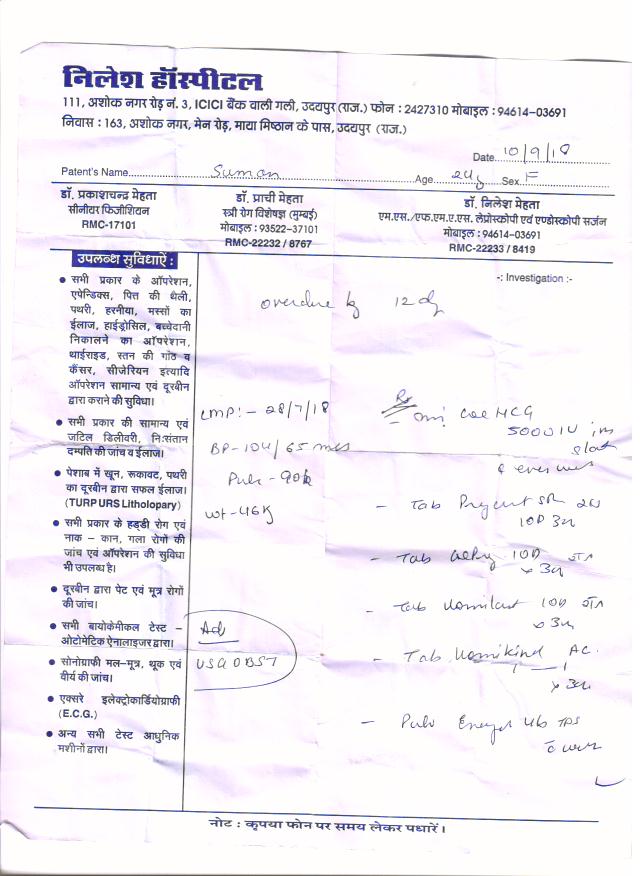 निलेश हॉस्पीटल
111, अशोक नगर रोड़ नं. 3, ICICI बैंक वाली गली, उदयपुर (राज.) फोन : 2427310 मोबाइल : 94614-03691
निवास : 163, अशोक नगर, मेन रोड़, माया मिष्ठान के पास, उदयपुर (राज.)
Date 10/9/18
Patent's Name Suman Age 24y Sex F
डॉ. प्रकाशचन्द्र मेहता
सीनीयर फिजीशियन
RMC-17101
डॉ. प्राची मेहता
स्त्री रोग विशेषज्ञ (मुम्बई)
मोबाइल : 93522-37101
RMC-22232 / 8767
डॉ. निलेश मेहता
एम.एस./एफ.एम.ए.एस. लेप्रोस्कोपी एवं एण्डोस्कोपी सर्जन
मोबाइल : 94614-03691
RMC-22233 / 8419
उपलब्ध सुविधाऐं :
● सभी प्रकार के ऑपरेशन,
एपेन्डिक्स, पित्त की थैली,
पथरी, हरनीया, मस्सों का
ईलाज, हाईड्रोसिल, बच्चेदानी
निकालने का ऑपरेशन,
थाईराइड, स्तन की गांठ व
कैंसर, सीजेरियन इत्यादि
ऑपरेशन सामान्य एवं दूरबीन
द्वारा कराने की सुविधा।
● सभी प्रकार की सामान्य एवं
जटिल डिलीवरी, नि:संतान
दम्पति की जांच व ईलाज।
● पेशाब में खून, रूकावट, पथरी
का दूरबीन द्वारा सफल ईलाज।
(TURP URS Litholopary)
● सभी प्रकार के हड्डी रोग एवं
नाक - कान, गला रोगों की
जांच एवं ऑपरेशन की सुविधा
भी उपलब्ध है।
● दूरबीन द्वारा पेट एवं मूत्र रोगों
की जांच।
● सभी बायोकेमीकल टेस्ट -
ओटोमेटिक ऐनालाइजर द्वारा।
● सोनोग्राफी मल-मूत्र, थूक एवं
वीर्य की जांच।
● एक्सरे इलेक्ट्रोकार्डियोग्राफी
(E.C.G.)
● अन्य सभी टेस्ट आधुनिक
मशीनों द्वारा।
-: Investigation :-
overdue by 12 dy
LMP:- 28/7/18
BP-104/65
Puls - 90
wt-46K
Ad
USG OBST
Rx
HCG
5000 IU im
- Tab SR
10D
- Tab 10D
- Tab 10D
- Tab AC
- Pulv
नोट : कृपया फोन पर समय लेकर पधारें।